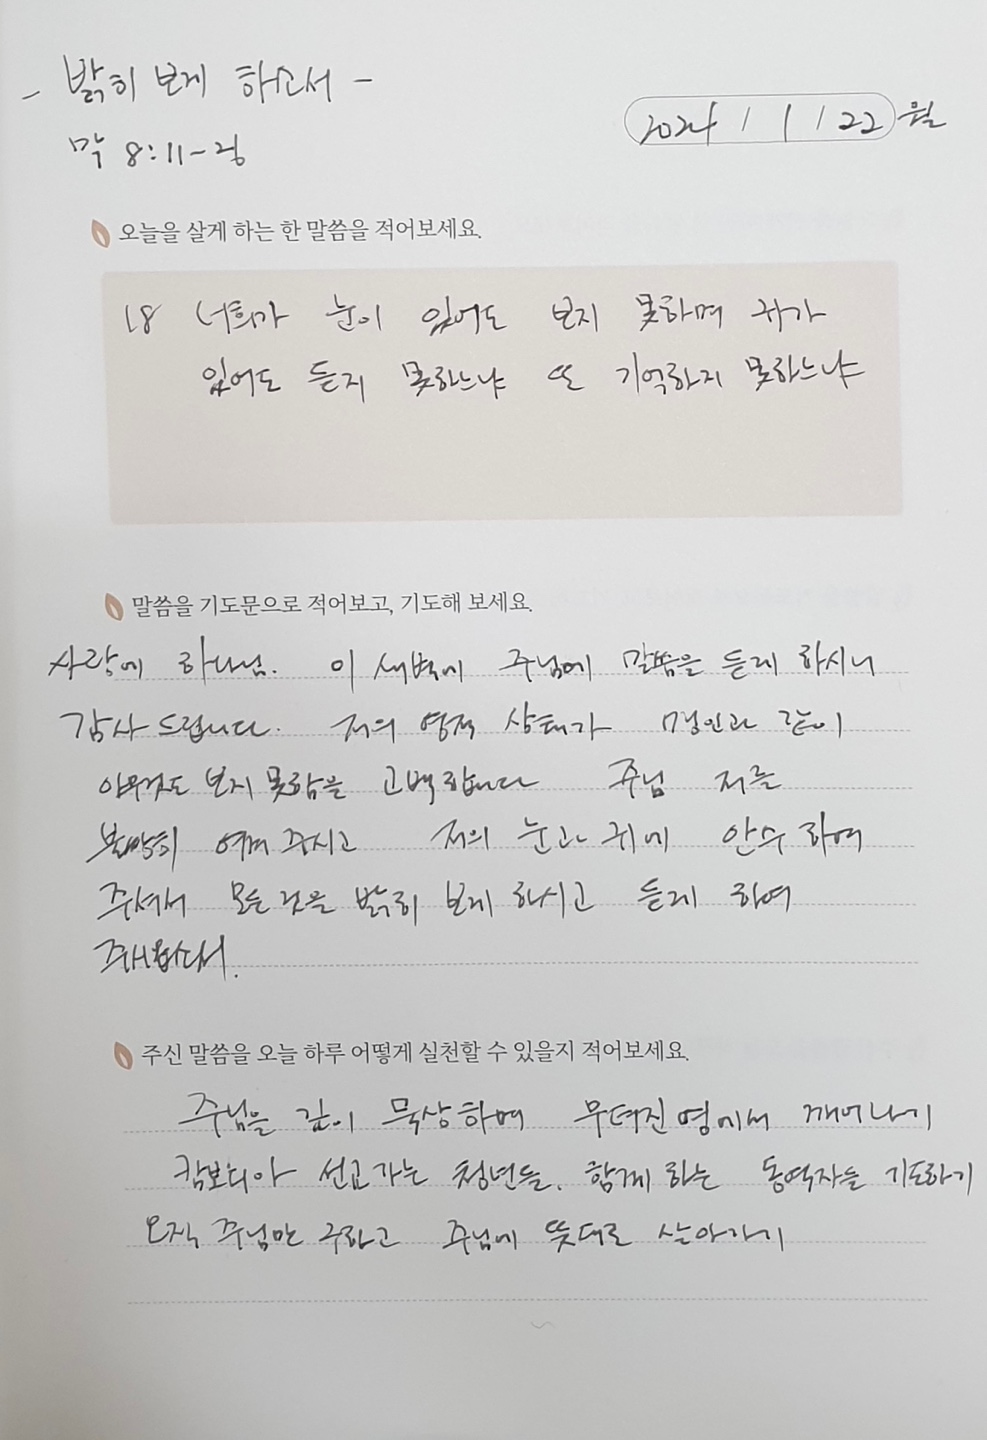 - 밝히 보게 하소서 -
2024 / 1 / 22 월
막 8:11-26
오늘을 살게 하는 한 말씀을 적어보세요.
18 너희가 눈이 있어도 보지 못하며 귀가
있어도 듣지 못하느냐 또 기억하지 못하느냐
말씀을 기도문으로 적어보고, 기도해 보세요.
사랑에 하나님. 이 새벽에 주님에 말씀을 듣게 하시니
감사드립니다. 저의 영적 상태가 맹인과 같이
아무것도 보지 못함을 고백합니다 주님 저를
불쌍히 여겨 주시고 저의 눈과 귀에 안수하여
주셔서 모든것을 밝히 보게 하시고 듣게 하여
주시옵소서.
주신 말씀을 오늘 하루 어떻게 실천할 수 있을지 적어보세요.
주님을 깊이 묵상하며 무뎌진 영에서 깨어나기
캄보디아 선교 가는 청년들, 함께 하는 동역자들 기도하기
오직 주님만 구하고 주님에 뜻대로 살아가기